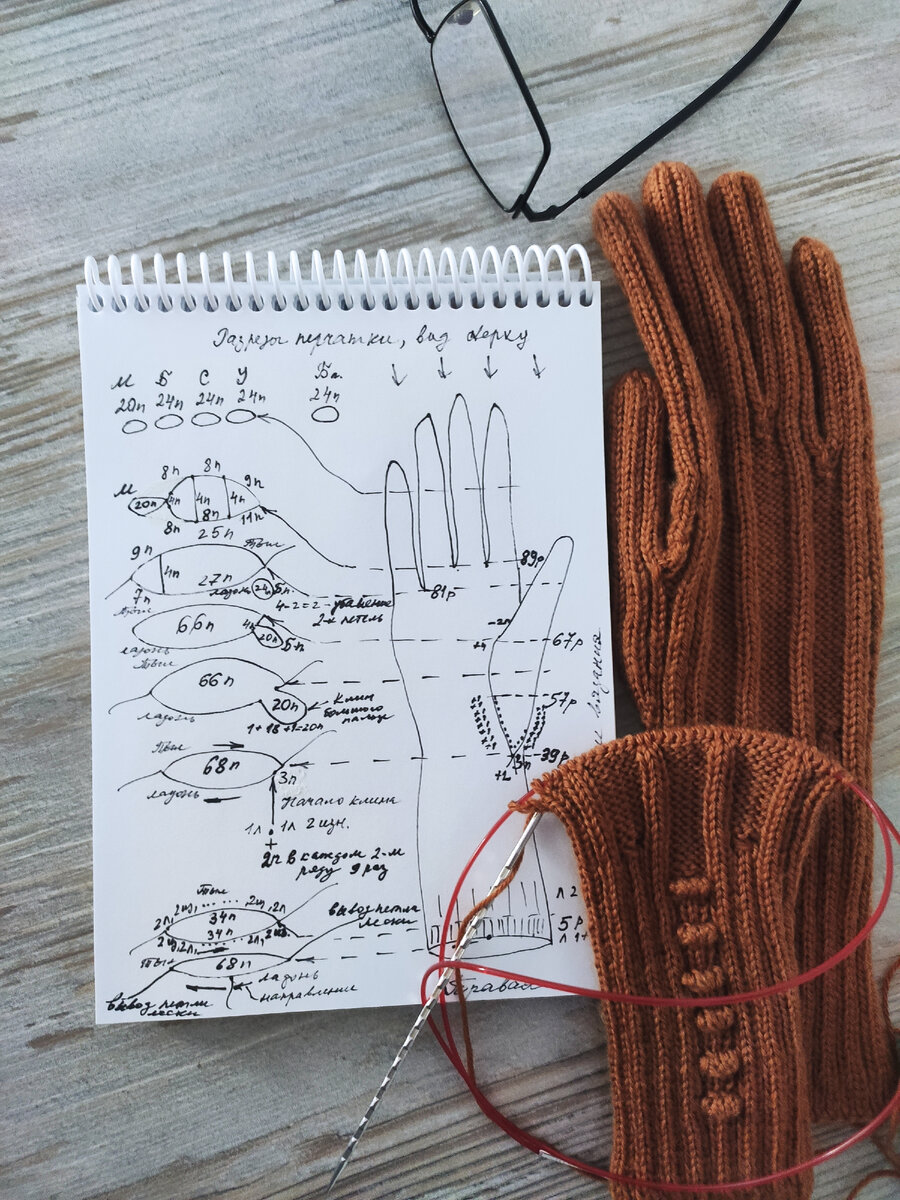 Разрезы перчатки, вид сверху
М Б С У Б.п.
20п 24п 24п 24п 24п
8п 8п 9п
М 20п 4п 4п 4п
8п 8п 11п
25п
9п Тыл
4п 27п
7п ладонь 5п
Тыл
4-2=2 - убавление
2-х петель
81р
89р
66п 4п
20п 5п
ладонь
-2п
+4
67р
Тыл
66п
20п
ладонь
Клин
большого
пальца
1+18+1=20п
57р
вязания
Тыл
68п
3п
ладонь
3п
39р
+2
Начало клина
1л 1л 2 изн.
+
2п в каждом 2-м
ряду 9 раз
Тыл
2л, 2и, 2и, 2п
34п
34п
2л,
вывод петли
лески
Л 2
5р
Л 1+
Тыл
68п
ладонь
направление
вывод петли
лески
Правая